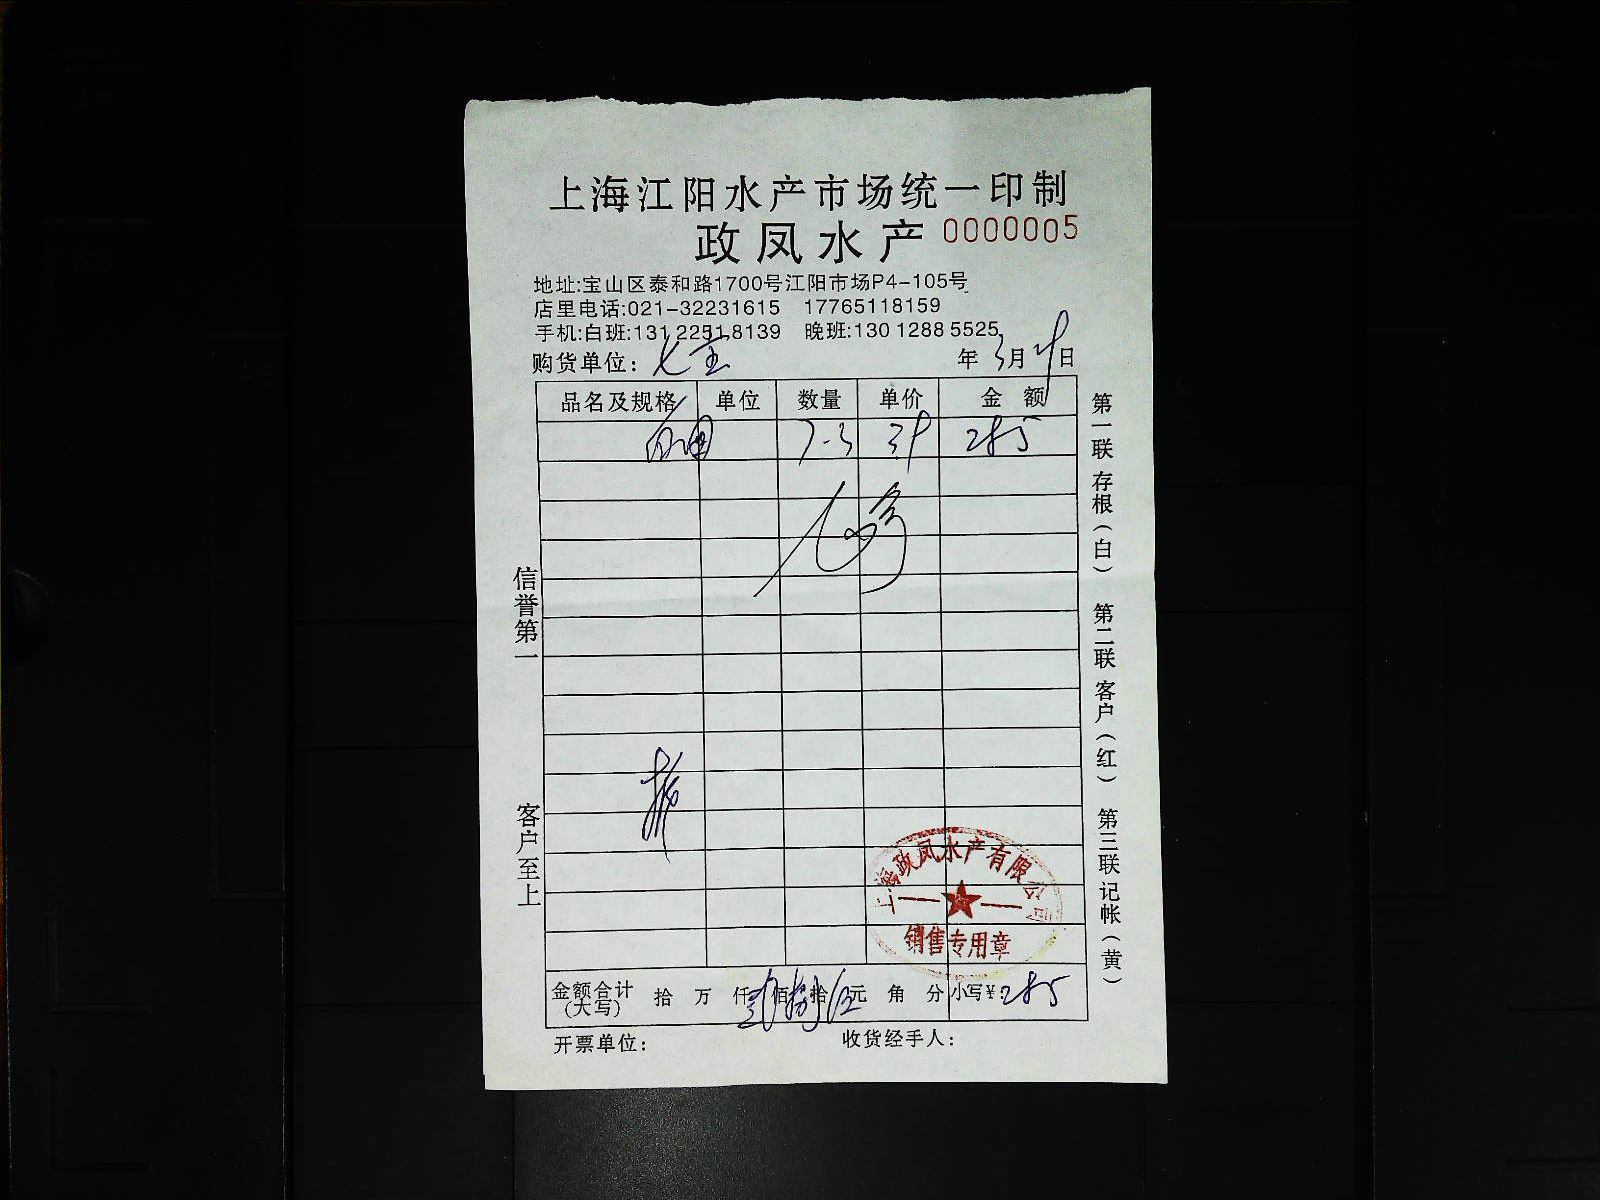 上海江阳水产市场统一印制
政凤水产 0000005
地址:宝山区泰和路1700号江阳市场P4-105号
店里电话:021-32231615 17765118159
手机:白班:131 2251 8139 晚班:130 1288 5525
购货单位: 七宝 年 3月29日
品名及规格 单位 数量 单价 金额
7-3 39 285
信誉第一
客户至上
第一联 存根(白) 第二联 客户(红) 第三联 记帐(黄)
上海政凤水产有限公司
销售专用章
金额合计(大写) 拾 万 仟 贰佰 捌拾 伍元 角 分 小写¥: 285
开票单位: 收货经手人: